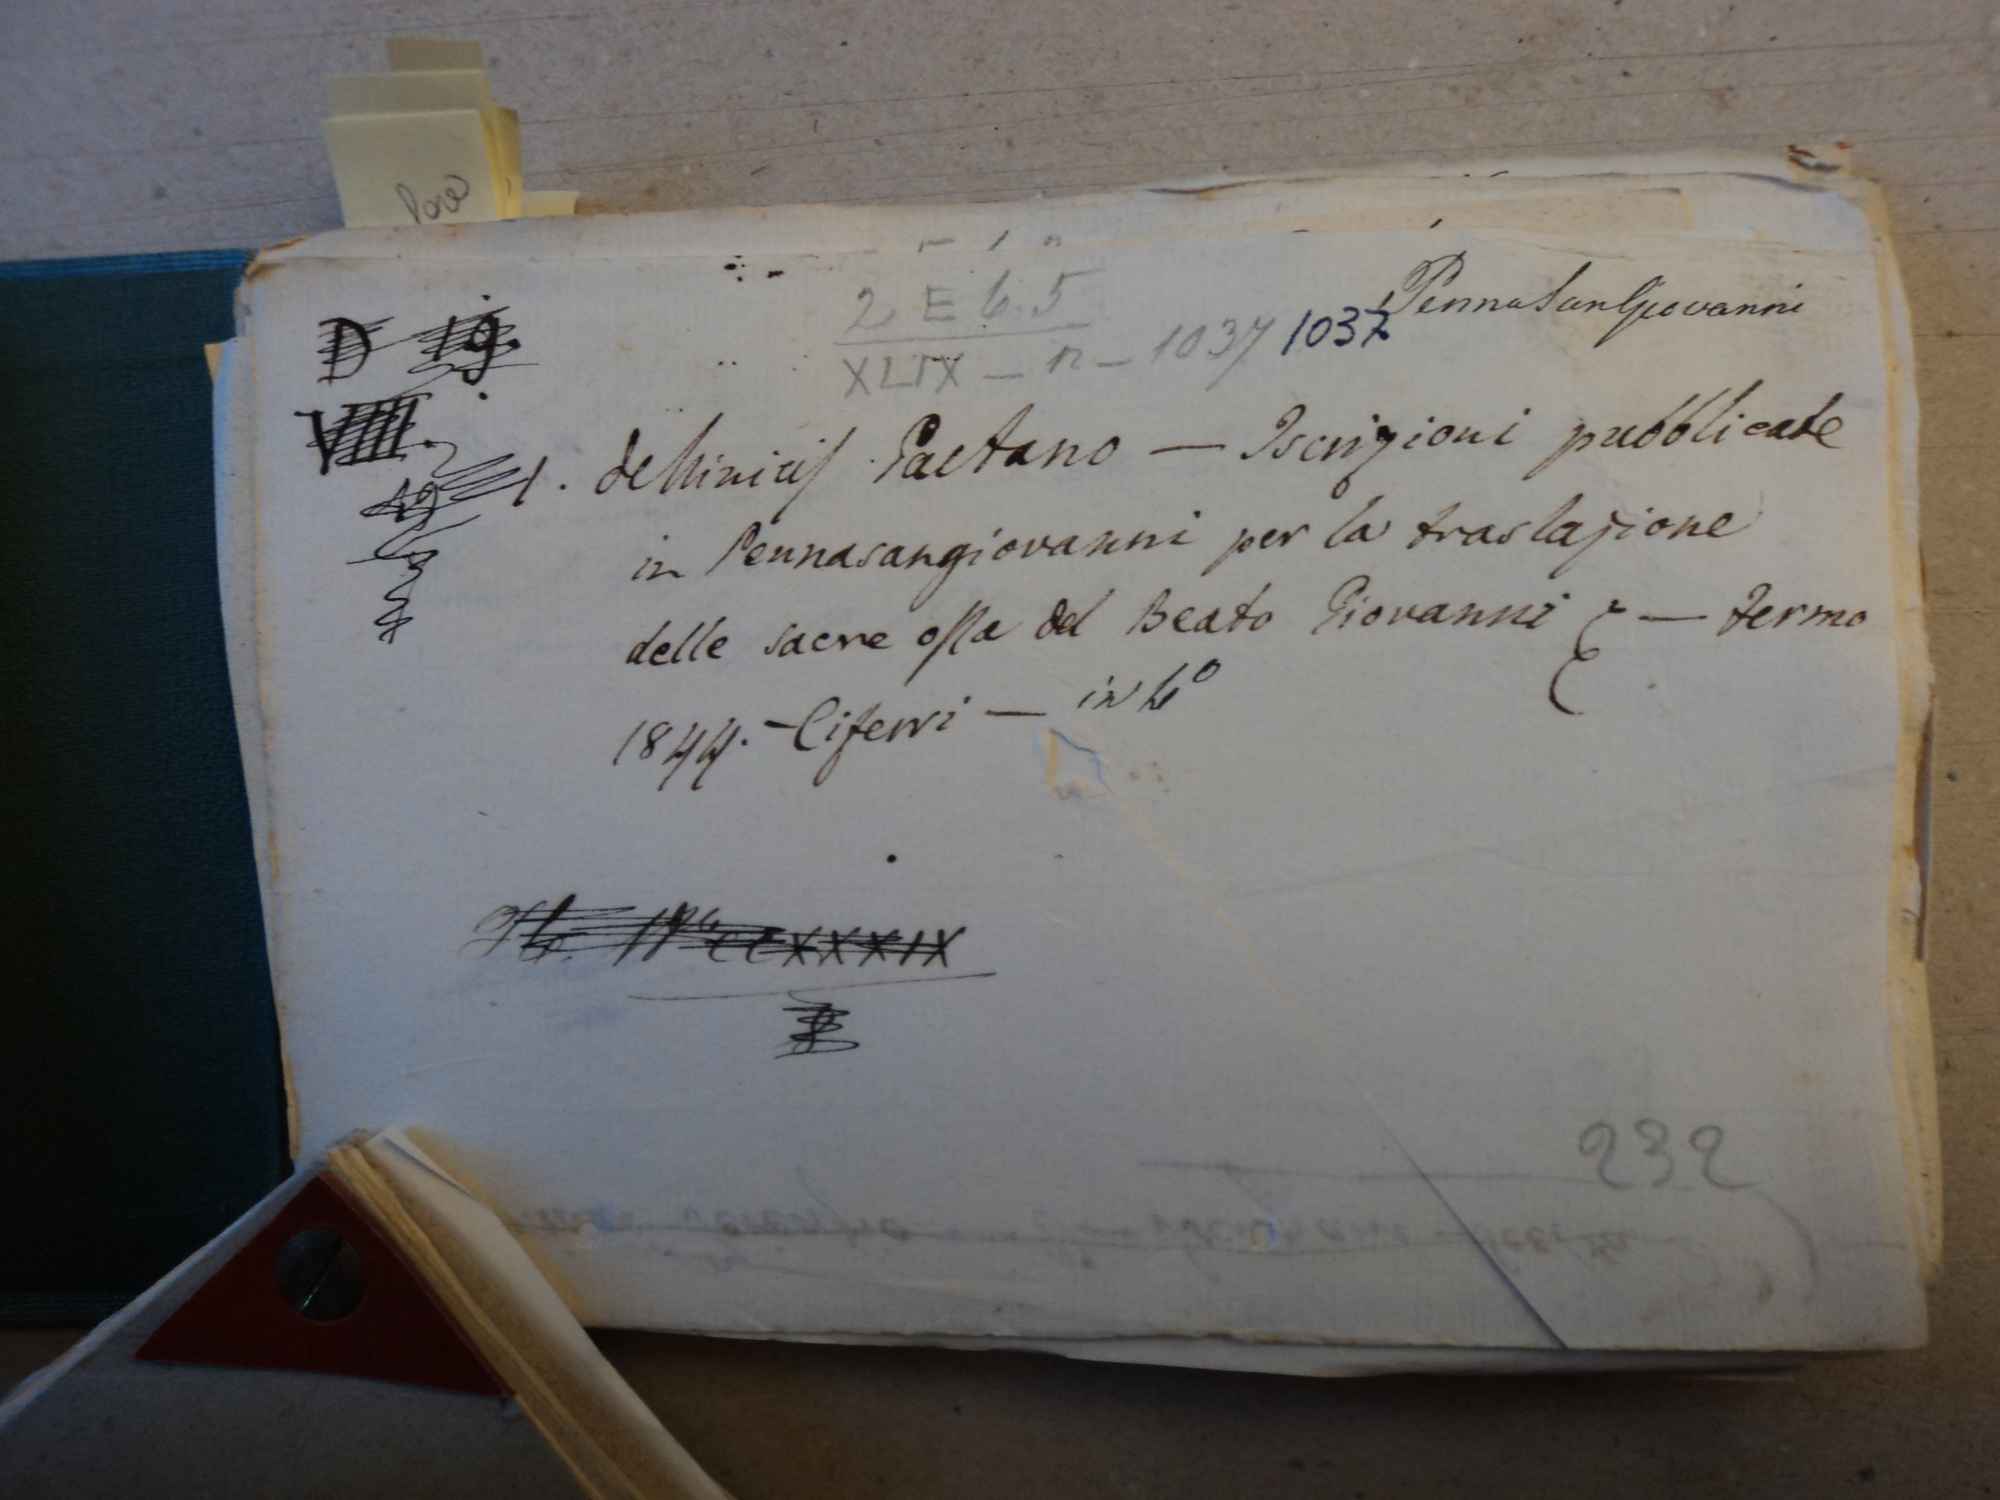 2 E 6. 5
PennaSanGiovanni
D 19.
XLIX - n - 1037 1037
VIIII.
1. deMinicis Gaetano — Iscrizioni pubblicate
in Pennasangiovanni per la traslazione
delle sacre ossa del Beato Giovanni — Fermo
1844. - Ciferri — in 4°
CCXXXIX
232